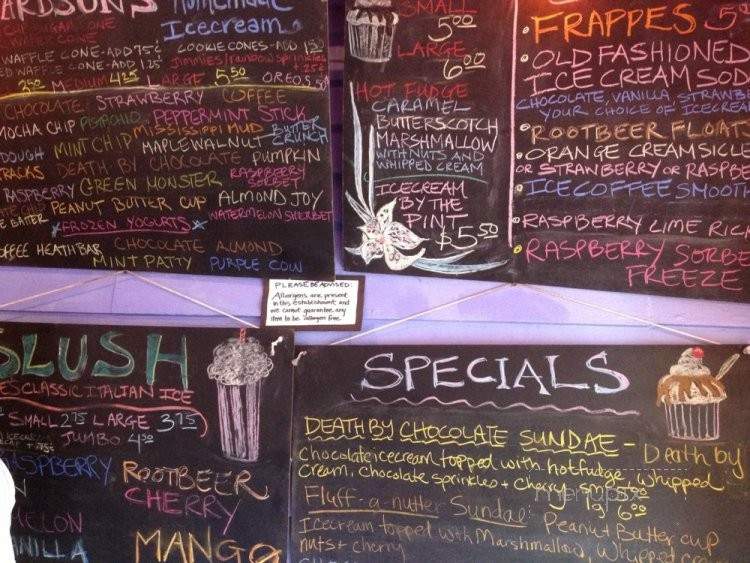 ARDSON'S
Homemade
Icecream
WAFFLE CONE-ADD 75¢
COOKIE CONES-ADD
WAFFLE CONE-ADD 1.25
Jimmies/rainbow sprinkles
2.50 MEDIUM 4.25 LARGE 5.50 OREOS
CHOCOLATE STRAWBERRY COFFEE
MOCHA CHIP PISTACHIO PEPPERMINT STICK
DOUGH MINT CHIP MISSISSIPPI MUD BUTTER CRUNCH
MAPLE WALNUT
TRACKS DEATH BY CHOCOLATE PUMPKIN
RASPBERRY GREEN MONSTER RASPBERRY SORBET
EATER PEANUT BUTTER CUP ALMOND JOY
WATERMELON SHERBET
FROZEN YOGURTS
COFFEE HEATHBAR CHOCOLATE ALMOND
MINT PATTY PURPLE COW
SMALL
5.00
LARGE
6.00
HOT FUDGE
CARAMEL
BUTTERSCOTCH
MARSHMALLOW
WITH NUTS AND
WHIPPED CREAM
ICECREAM
BY THE
PINT
$5.50
FRAPPES
OLD FASHIONED
ICE CREAM SOD
CHOCOLATE, VANILLA, STRAWBE
YOUR CHOICE OF ICECREA
ROOTBEER FLOAT
ORANGE CREAMSICLE
OR STRAWBERRY OR RASPBE
ICE COFFEE SMOOT
RASPBERRY LIME RICK
RASPBERRY SORBE
FREEZE
PLEASE BE ADVISED:
Allergens are present
in this establishment and
we cannot guarantee any
item to be "allergen free".
SLUSH
CLASSIC ITALIAN ICE
SMALL 2.75 LARGE 3.75
JUMBO 4.50
RASPBERRY ROOTBEER
CHERRY
MELON
VANILLA MANGO
SPECIALS
DEATH BY CHOCOLATE SUNDAE - Death by
chocolate icecream topped with hot fudge, whipped
cream, chocolate sprinkles + cherry
lg 6.00
Fluff-a-nutter Sundae: Peanut Butter cup
Icecream topped with Marshmallow, Whipped cream
nuts + cherry